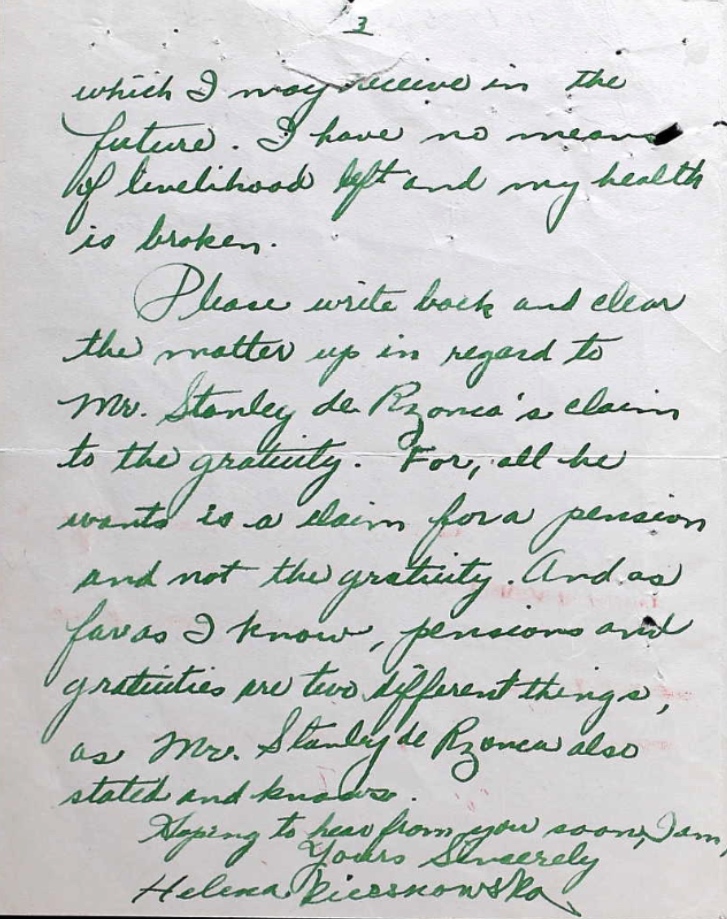 3
which I may receive in the
future. I have no means
of livelihood left and my health
is broken.
Please write back and clear
the matter up in regard to
Mr. Stanley de Rzonca's claim
to the gratuity. For, all he
wants is a claim for a pension
and not the gratuity. And as
far as I know, pensions and
gratuities are two different things,
as Mr. Stanley de Rzonca also
stated and knows.
Hoping to hear from you soon, I am,
Yours Sincerely
Helena